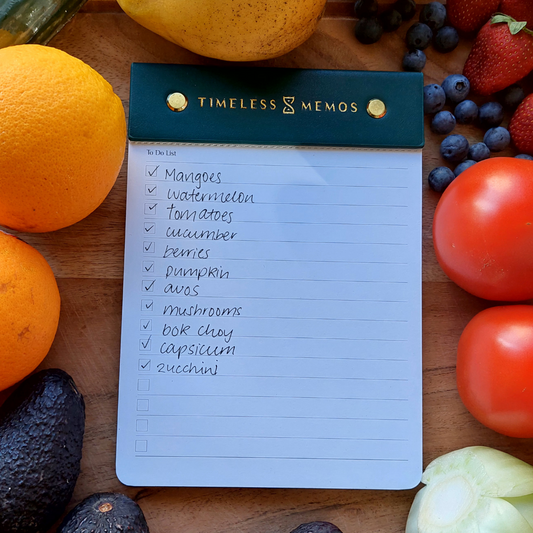 TIMELESS MEMOS
To Do List
Mangoes
watermelon
tomatoes
cucumber
berries
pumpkin
avos
mushrooms
bok choy
capsicum
zucchini